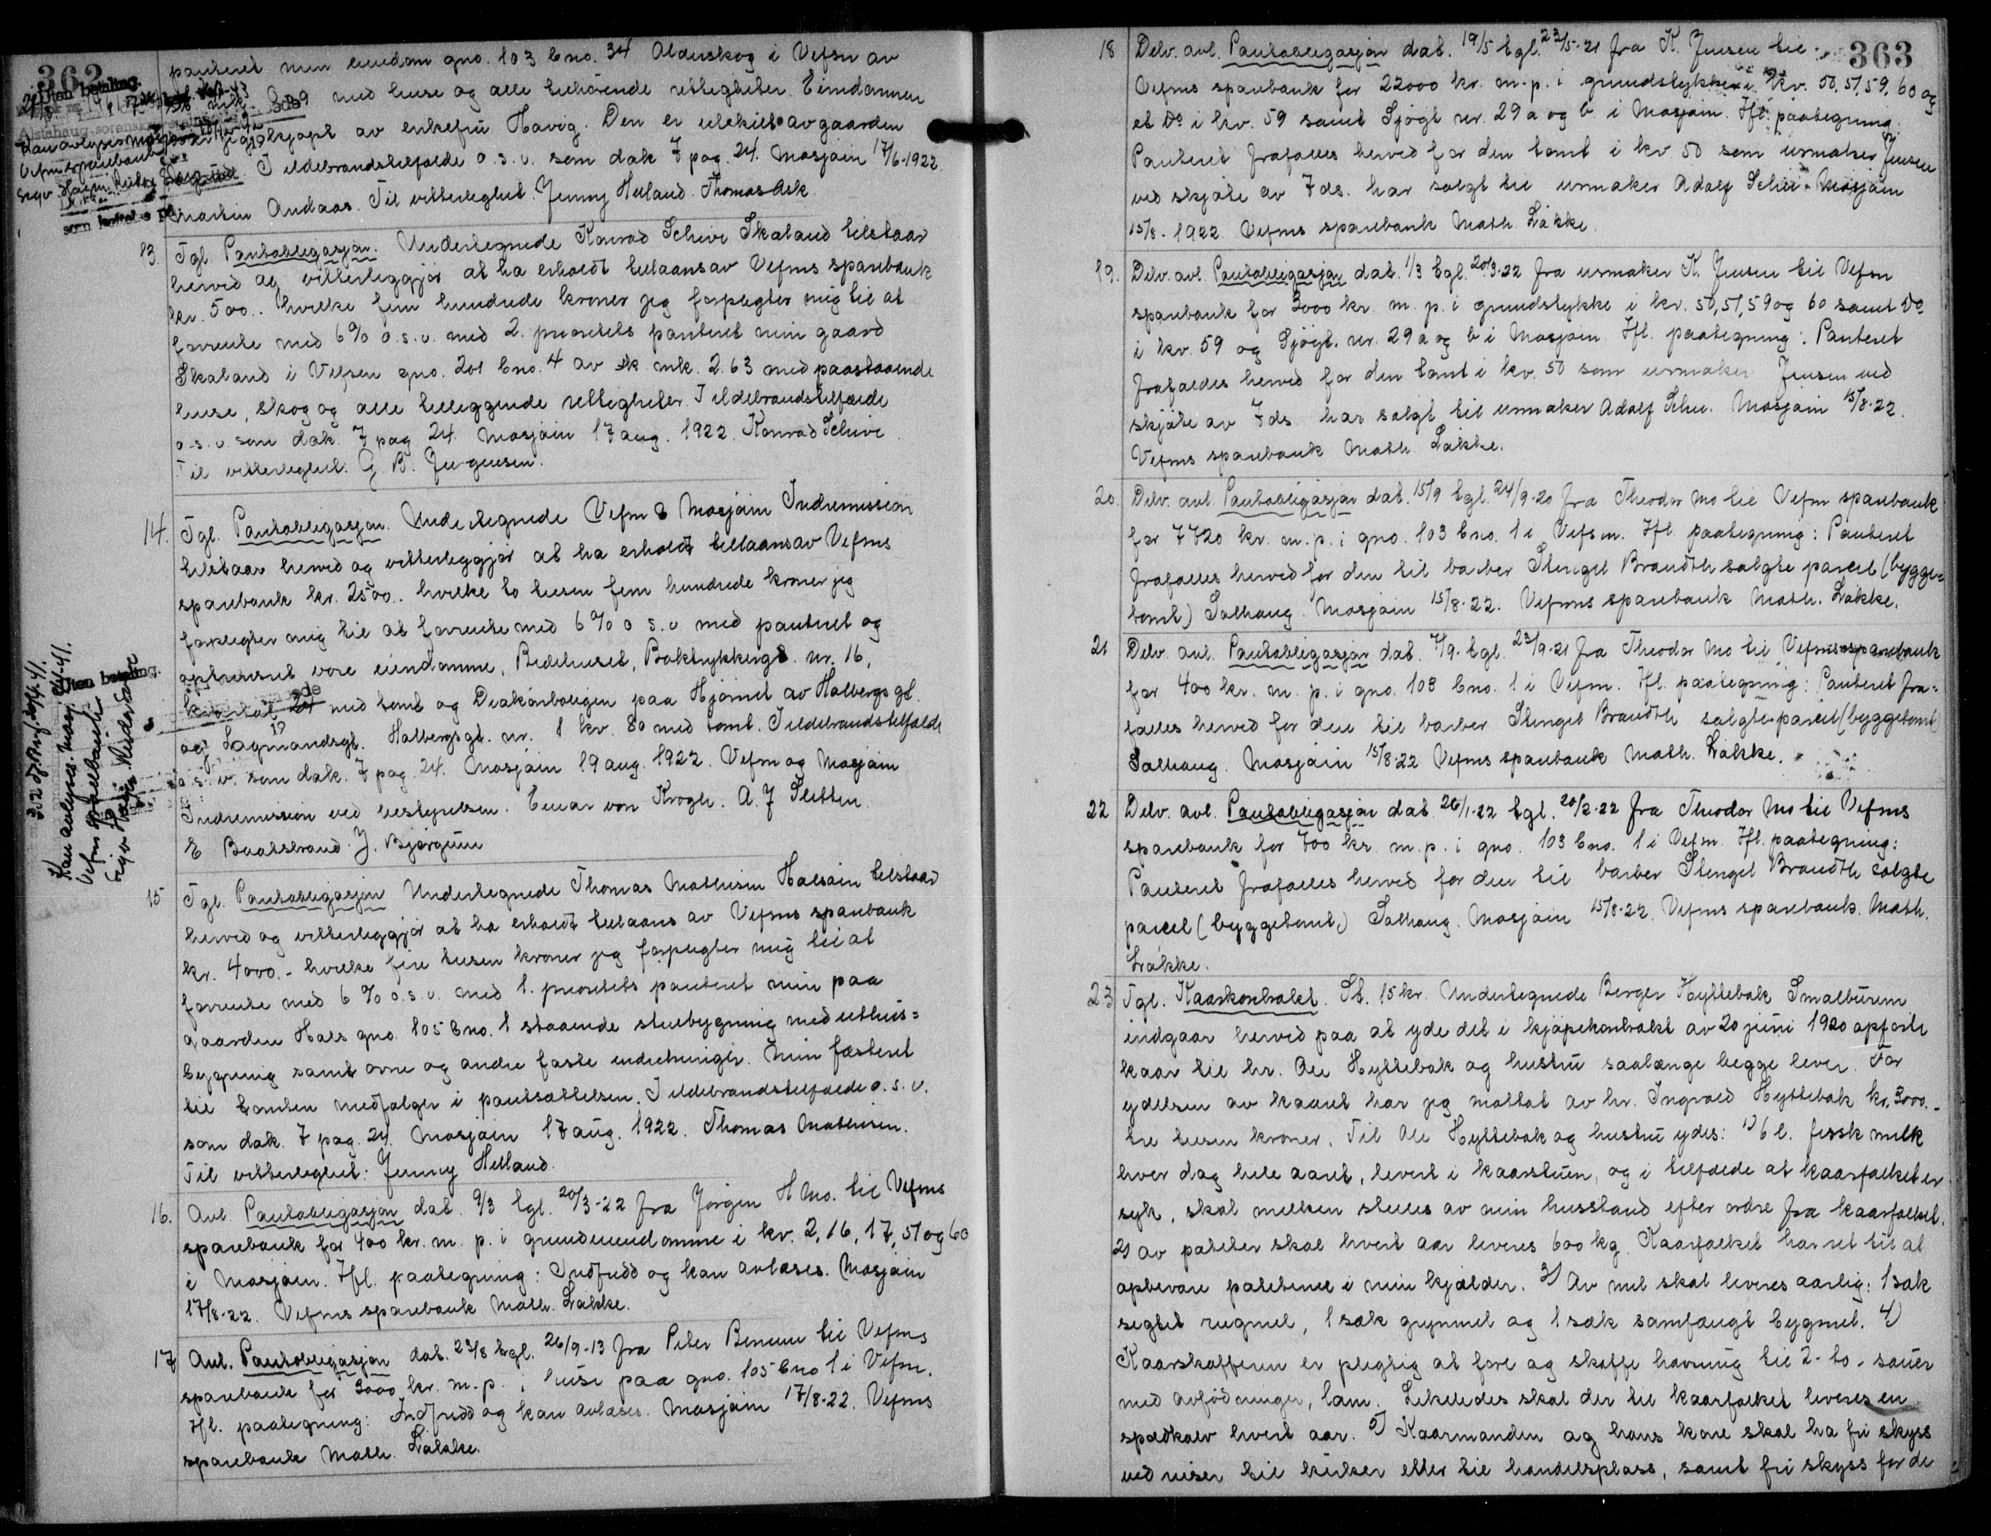 362
panteret min eiendom gno. 103 bno. 34 Olderskog i Vefsn av
Uten betaling.
med huse og alle tilhörende rettigheter. Eiendommen
Kan avlyses
kjøpt av enkefru Havig. Den er utskilt av gaarden
Vefsns sparebank
I ildebrandstilfælde o.s.v. som dok 7 pag. 24. Mosjøin 17/6-1922.
Martin Andaas. Til vitterleghet. Jenny Helland. Thomas Ask
13. Tgl. Pantobligasjon. Undertegnede Konrad Schive Skaland tilstaar
herved og vitterleggjør at ha erholdt tillaans av Vefsns sparebank
kr. 500.- hvilke fem hundrede kroner jeg forpligter mig til at
forrente med 6% o.s.v. med 2. prioritets panteret min gaard
Skaland i Vefsen gno. 201 bno. 4 av sk mk. 2.63 med paastaaende
huse, skog og alle tilliggende rettigheter. I ildebrandstilfælde
o.s.v. som dok. 7 pag 24. Mosjøin 17 aug. 1922. Konrad Schive
Til vitterleghet. G. B. Jürgensen.
14. Tgl. Pantobligasjon. Undertegnede Vefsn & Mosjøin Indremission
tilstaar herved og vitterleggjør at ha erholdt tillaans av Vefsns
sparebank kr. 2500.- hvilke to tusen fem hundrede kroner jeg
forpligter mig til at forrente med 6% o.s.v. med panteret og
opträdsret vore eiendomme, Bedehuset, Boktrykkergt. nr. 16,
kvartal 24 med tomt og Diakonboligen paa Hjørnet av Holbergsgt.
og Lagmandsgt. Holbergsgt. nr. 1 kv. 80 med tomt. I ildebrandstilfælde
o.s.v. som dok. 7 pag. 24. Mosjøin 19 aug. 1922. Vefsn og Mosjøin
Indremission ved bestyrelsen. Einar von Krogh. A. J Sletten.
E Baatstrand. J. Bjørgum
Uten betaling.
Kan avlyses. Mosj. 24/4-41.
Vefsns sparebank
15 Tgl. Pantobligasjon Undertegnede Thomas Mathisen Halsøin tilstaar
herved og vitterleggjør at ha erholdt tillaans av Vefsns sparebank
kr. 4000.- hvilke fire tusen kroner jeg forpligter mig til at
forrente med 6% o.s.v. med 1. prioritets panteret min paa
gaarden Hals gno. 105 bno. 1 staaende stuebygning med uthus=
bygning samt ovne og andre faste indretninger. Min fæsteret
til tomten medfølger i pantsættelsen. I ildebrandstilfælde o.s.v.
som dok. 7 pag. 24. Mosjøin 17 aug. 1922. Thomas Mathisen.
Til vitterleghet: Jenny Helland.
16. Avl. Pantobligasjon dat. 9/3 tgl. 20/3-22 fra Jørgen H Mo. til Vefsns
sparebank for 400 kr. m. p. i grundeiendomme i kv. 2, 16, 17, 51 og 60
i Mosjøin. Ifl. paategning: Indfridd og kan avlæses. Mosjøin
17/8-22. Vefsns sparebank Math. Løkke.
17 Avl. Pantobligasjon dat. 23/8 tgl. 26/9-13 fra Peter Bennum til Vefsns
sparebank for 3000 kr. m.p. i huse paa gno. 105 bno 1 i Vefsn.
Ifl. paategning: Indfridd og kan avlæses. Mosjøin 17/8-22. Vefsns
sparebank Math. Løkke.
363
18 Delv. avl. Pantobligasjon dat. 19/5 tgl. 23/5-21 fra K. Jensen til
Vefsns sparebank for 22000 kr. m.p. i grundstykker i kv. 50, 51, 59, 60 og
et do i kv. 59 samt Sjøgt nr. 29 a og b i Mosjøin. Ifl. paategning.
Panteret frafalles herved for den tomt i kv 50 som urmaker Jensen
ved skjøte av 7 ds. har solgt til urmaker Adolf Schei. Mosjøin
15/8-1922. Vefsns sparebank Math. Løkke.
19. Delv. avl. Pantobligasjon dat. 1/3 tgl. 20/3-22 fra urmaker K. Jensen til Vefsn
sparebank for 3000 kr. m. p. i grundstykke i kv. 50, 51, 59 og 60 samt do
i kv. 59 og Sjøgt. nr. 29 a og b i Mosjøen Ifl. paategning: Panteret
frafaldes herved for den tomt i kv. 50 som urmaker Jensen ved
skjøte av 7 ds. har solgt til urmaker Adolf Schei. Mosjøin 15/8-22.
Vefsns sparebank Math Løkke.
20. Delv. avl. Pantobligasjon dat. 15/9 tgl. 24/9-20 fra Theodor Mo til Vefsn sparebank
for 7720 kr. m.p. i gno. 103 bno. 1 i Vefsn. Ifl. paategning: Panteret
frafalles herved for den til barber Stengel Brandth solgte parcel (bygge=
tomt) Solhaug. Mosjøin 15/8-22. Vefsns sparebank Math. Løkke.
21 Delv. avl. Pantobligasjon dat. 7/9. tgl. 23/9-21 fra Theodor Mo til Vefsns sparebank
for 400 kr. m. p. i gno. 103 bno. 1 i Vefsn. Ifl. paategning: Panteret fra=
falles herved for den til barber Stengel Brandth solgte parcel (byggetomt)
Solhaug. Mosjøin 15/8-22 Vefsns sparebank Math. Løkke.
22 Delv. avl. Pantobligasjon dat. 26/1-22 tgl. 20/2-22 fra Theodor Mo til Vefsns
sparebank for 700 kr. m.p. i gno. 103 bno. 1 i Vefsn. Ifl. paategning:
Panteret frafalles herved for den til barber Stengel Brandth solgte
parcel (byggetomt.) Solhaug. Mosjøin 15/8-22. Vefsns sparebank. Math.
Løkke.
23 Tgl. Kaarkontrakt. St. 15 kr. Undertegnede Berger Hyttebak Småtbüren
indgaar herved paa at yde det i kjøpekontrakt av 20 juni 1920 opførte
kaar til hr. Ole Hyttebak og hustru saalænge begge lever. For
ydelsen av kaaret har jeg mottat av hr. Ingvald Hyttebak kr. 3000.-
tre tusen kroner. Til Ole Hyttebak og hustru ydes: 1) 6 l. fersk melk
hver dag hele aaret, levert i kaarstuen, og i tilfælde at kaarfolket er
syk, skal melken stelles av min husstand efter ordre fra kaarfolket.
2) av poteter skal hvert aar leveres 600 kg. Kaarfolket har ret til at
opbevare potetene i min kjælder. 3) Av mel skal leveres aarlig: 1 sæk
sigtet rugmel, 1 sæk grynmel og 1 sæk samfængt bygmel. 4)
Kaarskafferen er pligtig at fore og skaffe havning til 2-to-sauer
med avfødninger, lam. Likeledes skal der til kaarfolket leveres en
spædkalv hvert aar. 5) Kaarmanden og hans kone skal ha fri skyss
ved reiser til kirken eller til handelsplass, samt fri skyss for de